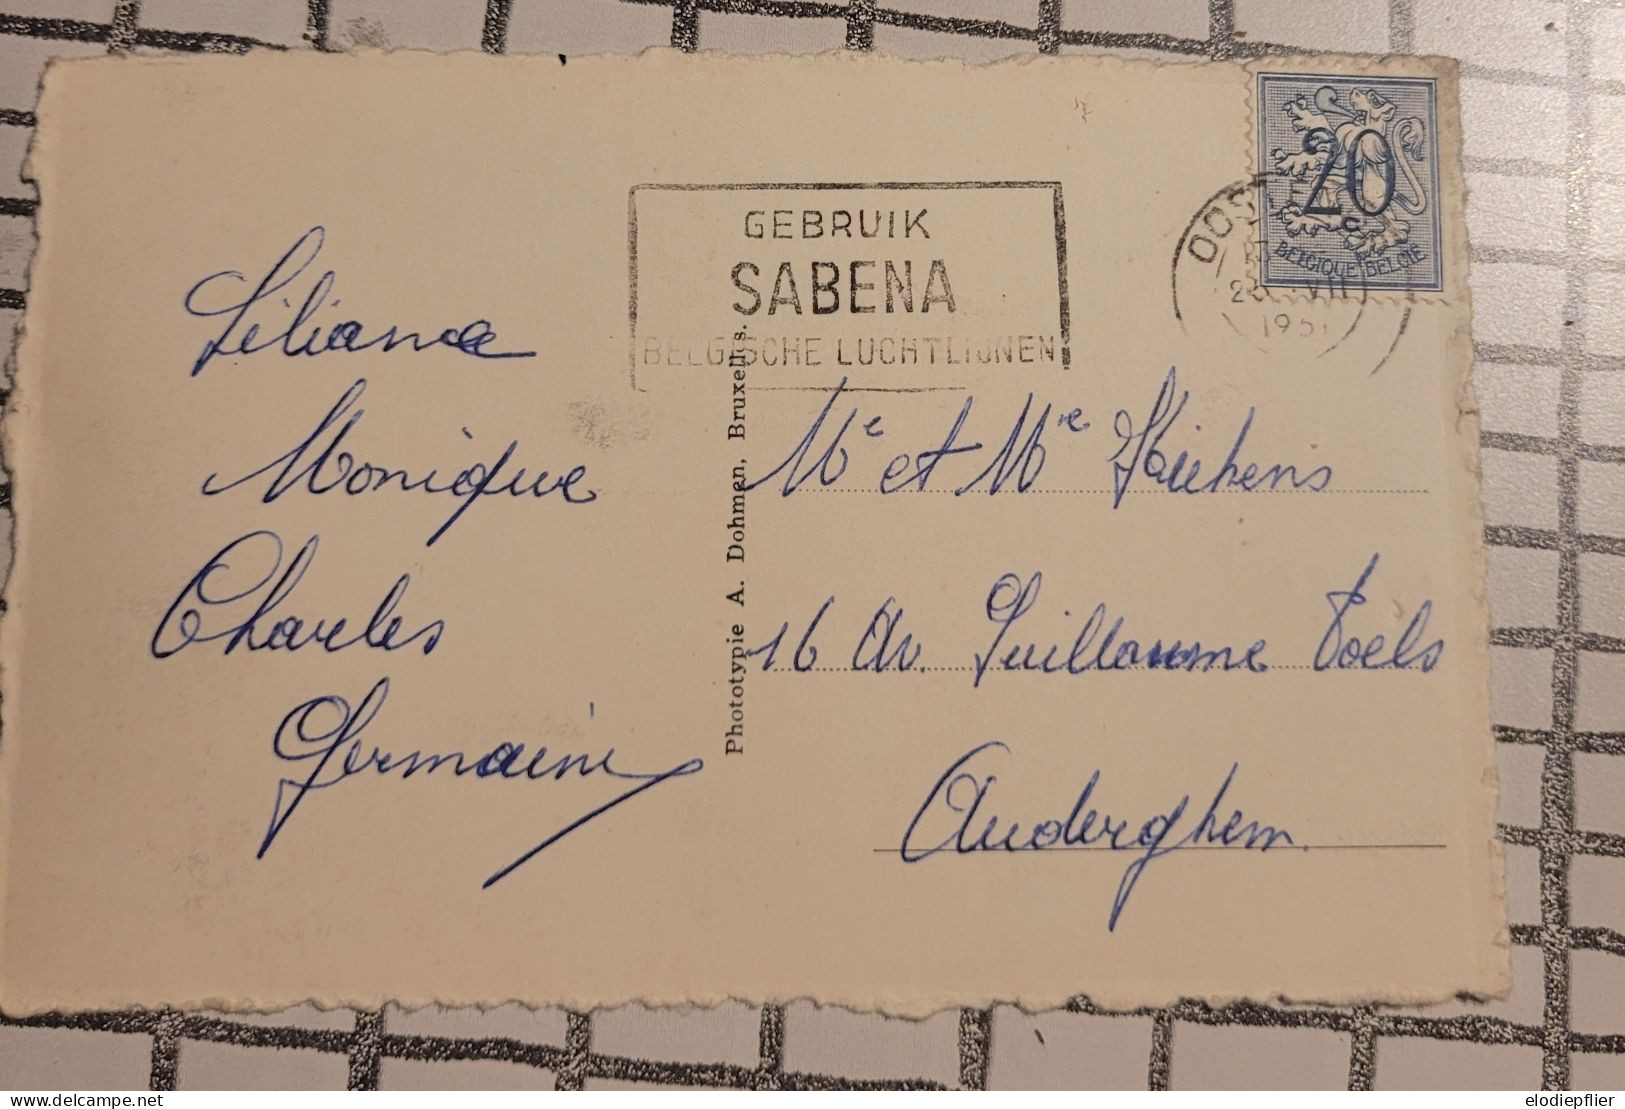 GEBRUIK
SABENA
BELGISCHE LUCHTLIJNEN
20
BELGIQUE BELGIË
VII
Liliane
Monique
Charles
Germaine
Phototypie A. Dohmen, Bruxelles.
Mr et Mme
16 Av. Guillaume Poels
Auderghem.
www.delcampe.net
elodiepflier